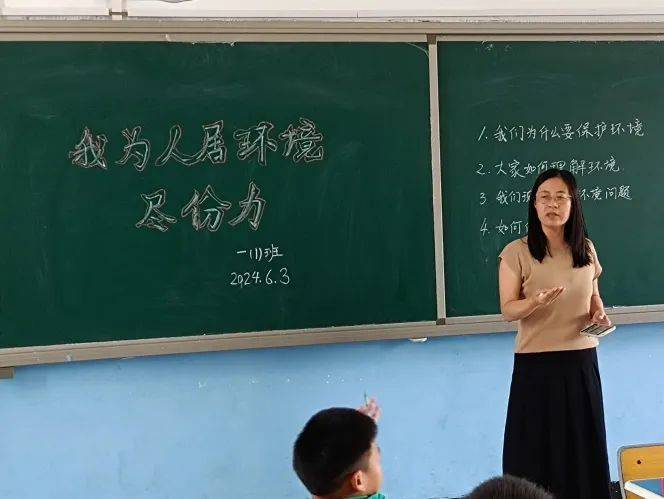 我为人居环境
尽份力
一(1)班
2024.6.3
1. 我们为什么要保护环境
2. 大家如何理解环境
3 我们 环境问题
4. 如何